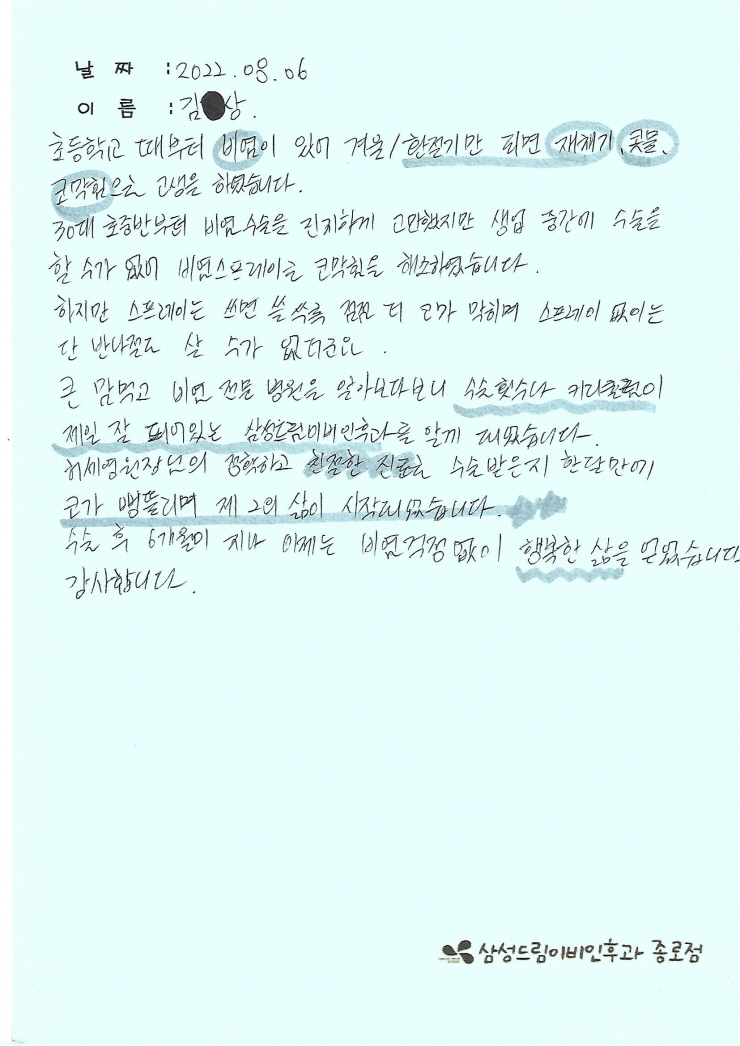 날 짜 : 2022.08.06
이 름 : 김 상.
초등학교 때부터 비염이 있어 겨울/환절기만 되면 재채기, 콧물,
코막힘으로 고생을 하였습니다.
30대 초중반부터 비염수술을 진지하게 고민했지만 생업 중간에 수술을
할 수가 없어 비염스프레이로 코막힘을 해소하였습니다.
하지만 스프레이는 쓰면 쓸 수록 점점 더 코가 막히며 스프레이 없이는
단 반나절도 살 수가 없더군요.
큰 맘먹고 비염 전문 병원을 알아보다보니 수술횟수나 커리큘럼이
제일 잘 되어있는 삼성드림이비인후과를 알게 되었습니다.
허세영원장님의 정확하고 친절한 진료로 수술받은지 한달만에
코가 뻥뚤리며 제 2의 삶이 시작되었습니다.
수술 후 6개월이 지나 이제는 비염걱정 없이 행복한 삶을 얻었습니다
감사합니다.
삼성드림이비인후과 종로점